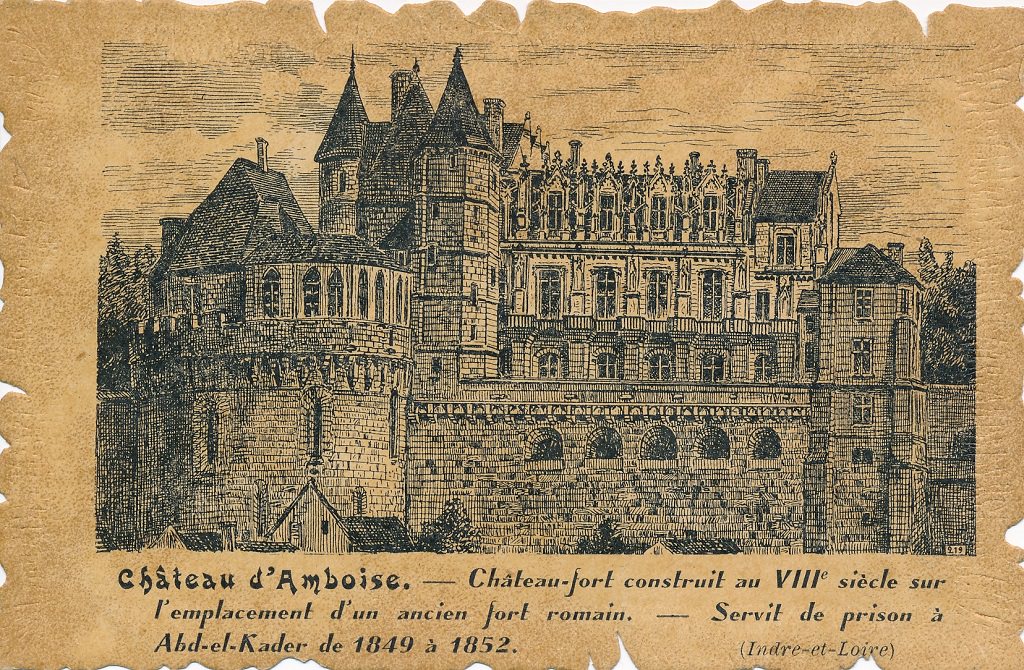 219
Château d'Amboise. — Château-fort construit au VIIIe siècle sur
l'emplacement d'un ancien fort romain. — Servit de prison à
Abd-el-Kader de 1849 à 1852. (Indre-et-Loire)